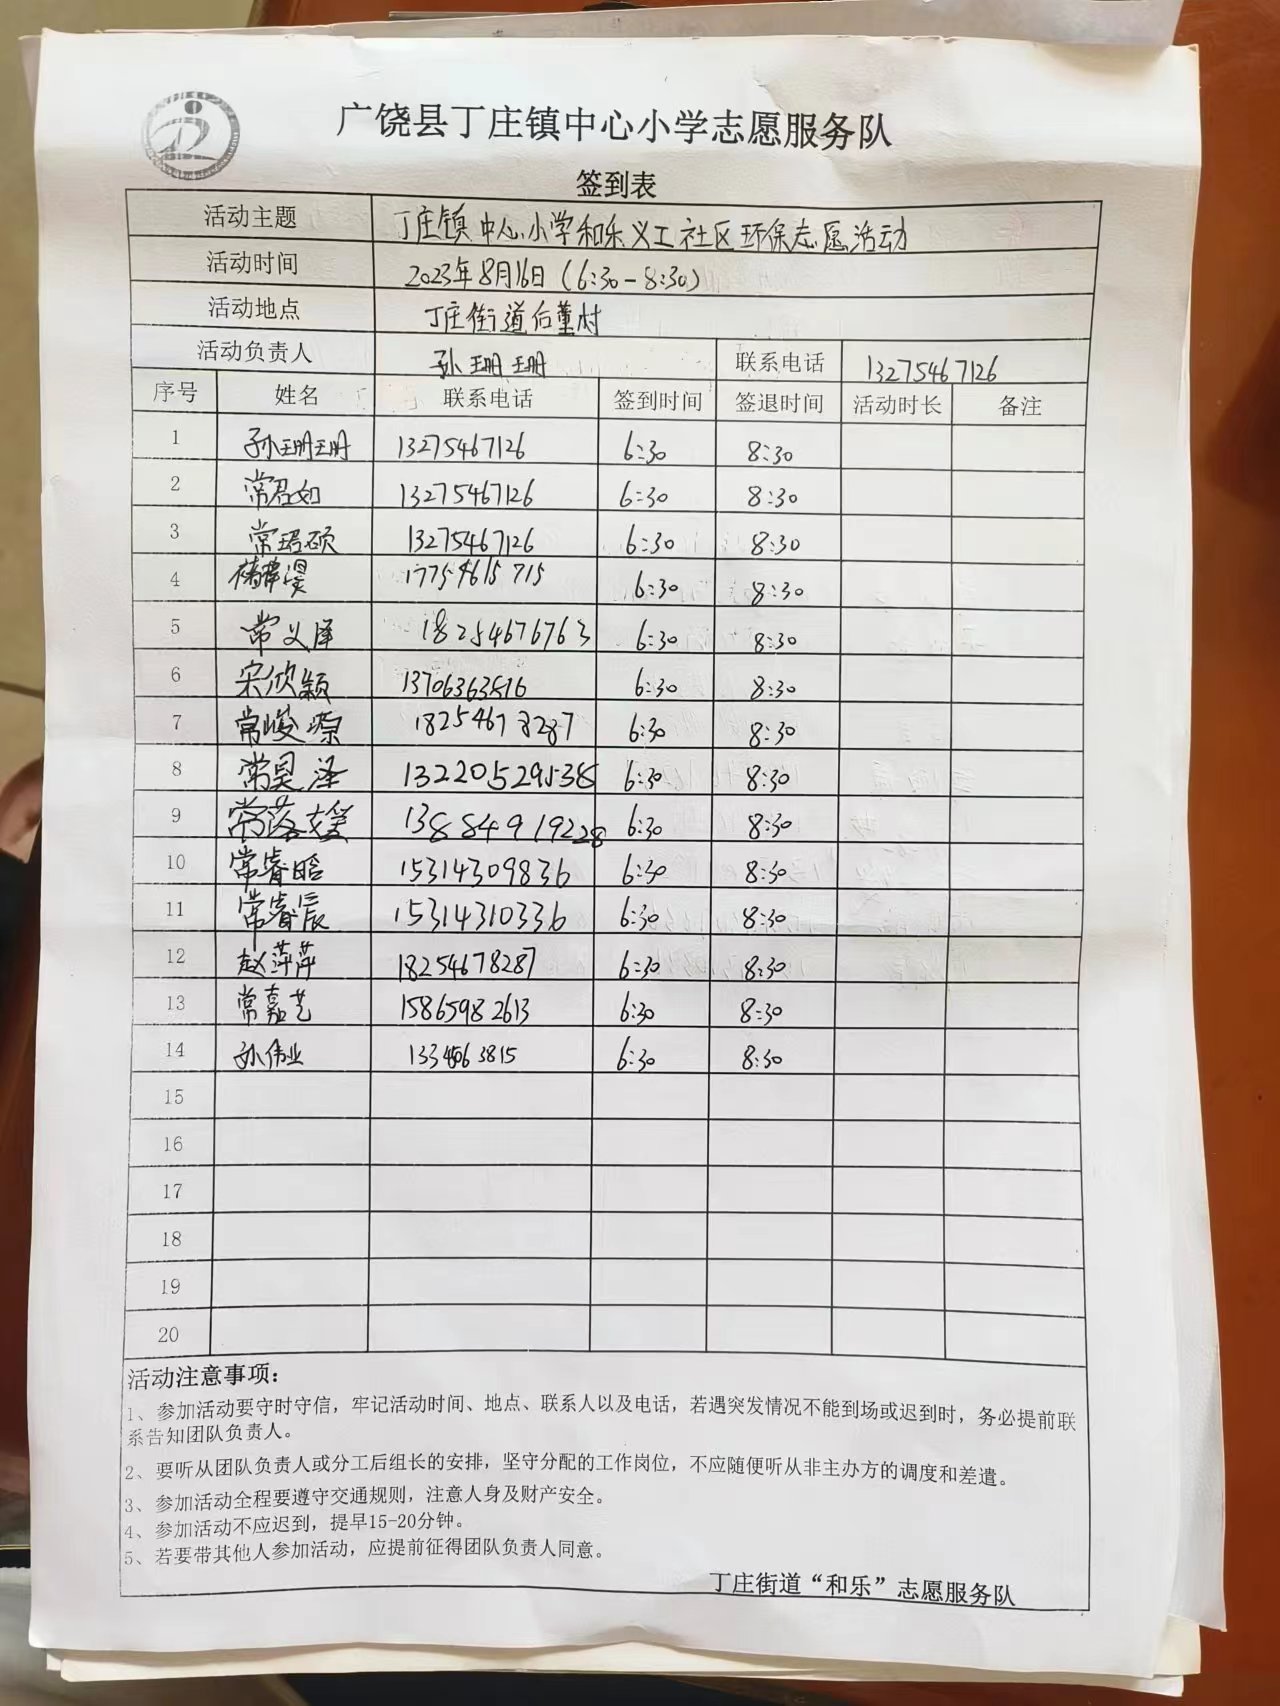 广饶县丁庄镇中心小学志愿服务队
签到表
活动主题 丁庄镇中心小学和乐义工社区环保志愿活动
活动时间 2023年8月16日（6:30-8:30）
活动地点 丁庄街道后董村
活动负责人 孙珊珊 联系电话 13275467126
序号 姓名 联系电话 签到时间 签退时间 活动时长 备注
1 孙珊珊 13275467126 6:30 8:30
2 常君如 13275467126 6:30 8:30
3 常珺硕 13275467126 6:30 8:30
4 17754615715 6:30 8:30
5 常义泽 18254676763 6:30 8:30
6 宋欣颖 13706363516 6:30 8:30
7 常峻源 18254678287 6:30 8:30
8 常昊泽 13220529538 6:30 8:30
9 常落媛 13884919228 6:30 8:30
10 常睿晗 15314309836 6:30 8:30
11 常睿辰 15314310336 6:30 8:30
12 赵萍萍 18254678287 6:30 8:30
13 常嘉艺 15865982613 6:30 8:30
14 孙伟业 6:30 8:30
15
16
17
18
19
20
活动注意事项：
1、参加活动要守时守信，牢记活动时间、地点、联系人以及电话，若遇突发情况不能到场或迟到时，务必提前联
系告知团队负责人。
2、要听从团队负责人或分工后组长的安排，坚守分配的工作岗位，不应随便听从非主办方的调度和差遣。
3、参加活动全程要遵守交通规则，注意人身及财产安全。
4、参加活动不应迟到，提早15-20分钟。
5、若要带其他人参加活动，应提前征得团队负责人同意。
丁庄街道“和乐”志愿服务队